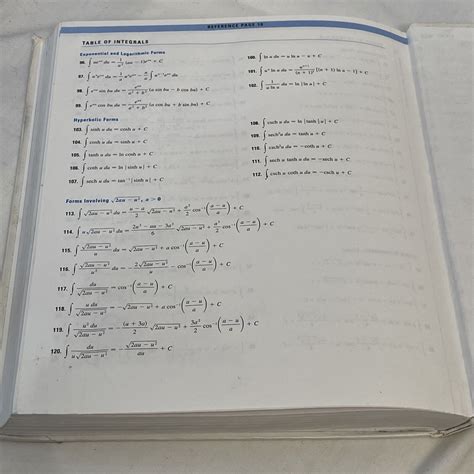 REFERENCE PAGE 10
TABLE OF INTEGRALS
Exponential and Logarithmic Forms
96. ∫ ue^{au} du = 1/a² (au − 1)e^{au} + C
97. ∫ uⁿe^{au} du = 1/a uⁿe^{au} − n/a ∫ u^{n−1}e^{au} du
98. ∫ e^{au} sin bu du = e^{au}/(a² + b²) (a sin bu − b cos bu) + C
99. ∫ e^{au} cos bu du = e^{au}/(a² + b²) (a cos bu + b sin bu) + C
100. ∫ ln u du = u ln u − u + C
101. ∫ uⁿ ln u du = u^{n+1}/(n + 1)² [(n + 1) ln u − 1] + C
102. ∫ 1/(u ln u) du = ln |ln u| + C
Hyperbolic Forms
103. ∫ sinh u du = cosh u + C
104. ∫ cosh u du = sinh u + C
105. ∫ tanh u du = ln cosh u + C
106. ∫ coth u du = ln |sinh u| + C
107. ∫ sech u du = tan⁻¹ |sinh u| + C
108. ∫ csch u du = ln |tanh ½u| + C
109. ∫ sech² u du = tanh u + C
110. ∫ csch² u du = −coth u + C
111. ∫ sech u tanh u du = −sech u + C
112. ∫ csch u coth u du = −csch u + C
Forms Involving √(2au − u²), a > 0
113. ∫ √(2au − u²) du = (u − a)/2 √(2au − u²) + a²/2 cos⁻¹((a − u)/a) + C
114. ∫ u√(2au − u²) du = (2u² − au − 3a²)/6 √(2au − u²) + a³/2 cos⁻¹((a − u)/a) + C
115. ∫ √(2au − u²)/u du = √(2au − u²) + a cos⁻¹((a − u)/a) + C
116. ∫ √(2au − u²)/u² du = −2√(2au − u²)/u − cos⁻¹((a − u)/a) + C
117. ∫ du/√(2au − u²) = cos⁻¹((a − u)/a) + C
118. ∫ u du/√(2au − u²) = −√(2au − u²) + a cos⁻¹((a − u)/a) + C
119. ∫ u² du/√(2au − u²) = −(u + 3a)/2 √(2au − u²) + 3a²/2 cos⁻¹((a − u)/a) + C
120. ∫ du/(u√(2au − u²)) = −√(2au − u²)/au + C